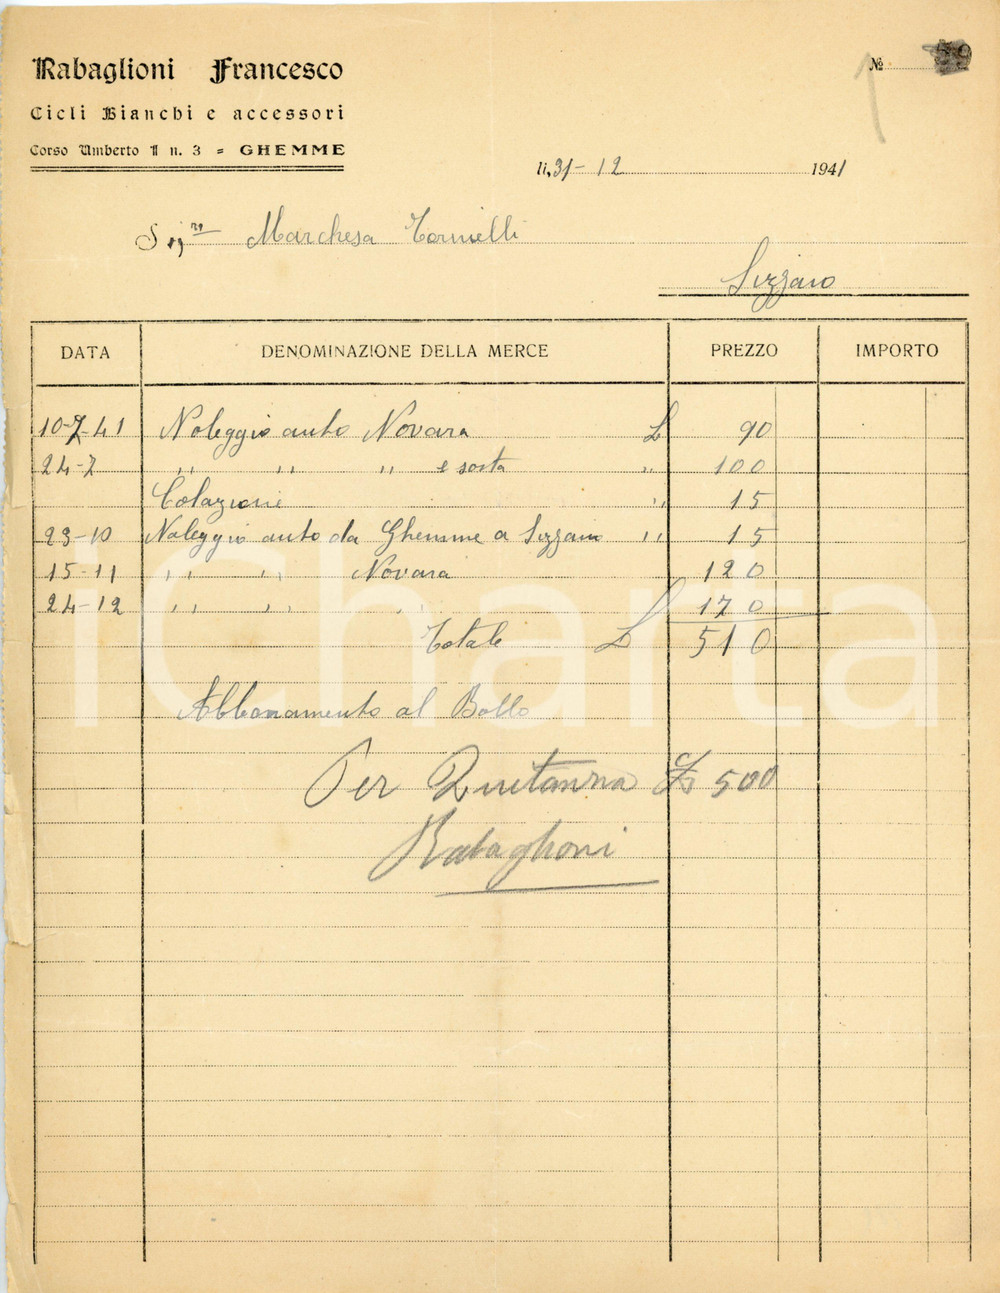 Rabaglioni Francesco
Cicli Bianchi e accessori
Corso Umberto I n. 3 = GHEMME
№
li, 31-12 1941
Sigra Marchesa Tornielli
Sizzano
DATA DENOMINAZIONE DELLA MERCE PREZZO IMPORTO
10-7-41 Noleggio auto Novara L 90
24-7 " " " e sosta " 100
Colazione " 15
23-10 Noleggio auto da Ghemme a Sizzano " 15
15-11 " " Novara 120
24-12 " " " 170
Totale L 510
Abbonamento al Bollo
Per Quitanza £ 500
Rabaglioni
iCharta